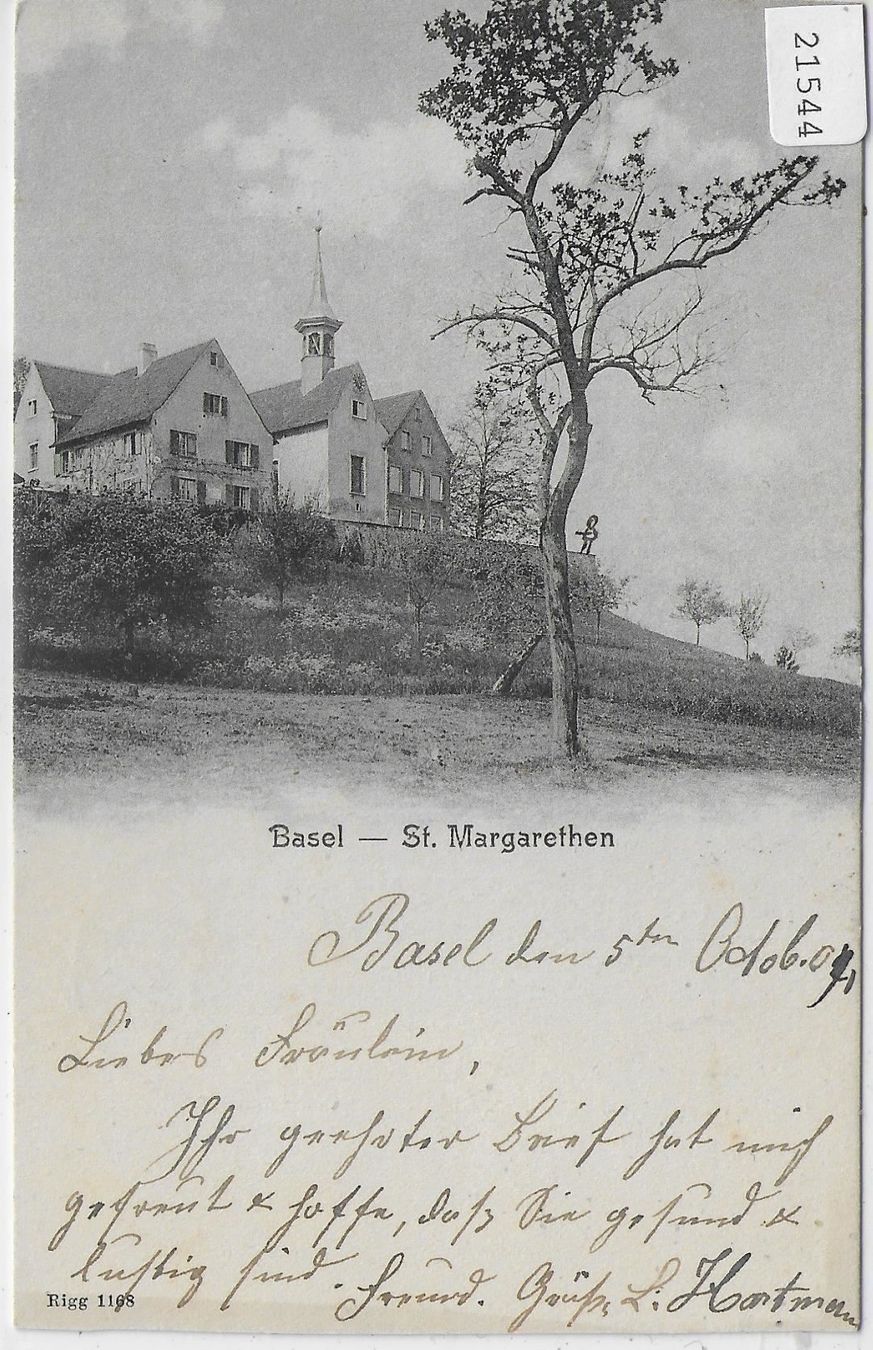 21544
Basel — St. Margarethen
Basel den 5ten Octob. 04,
Liebes Fräulein,
Ihr geehrter Brief hat mich
gefreut & hoffe, daß Sie gesund &
lustig sind. Freund. Grüße, L. Hartmann
Rigg 1168